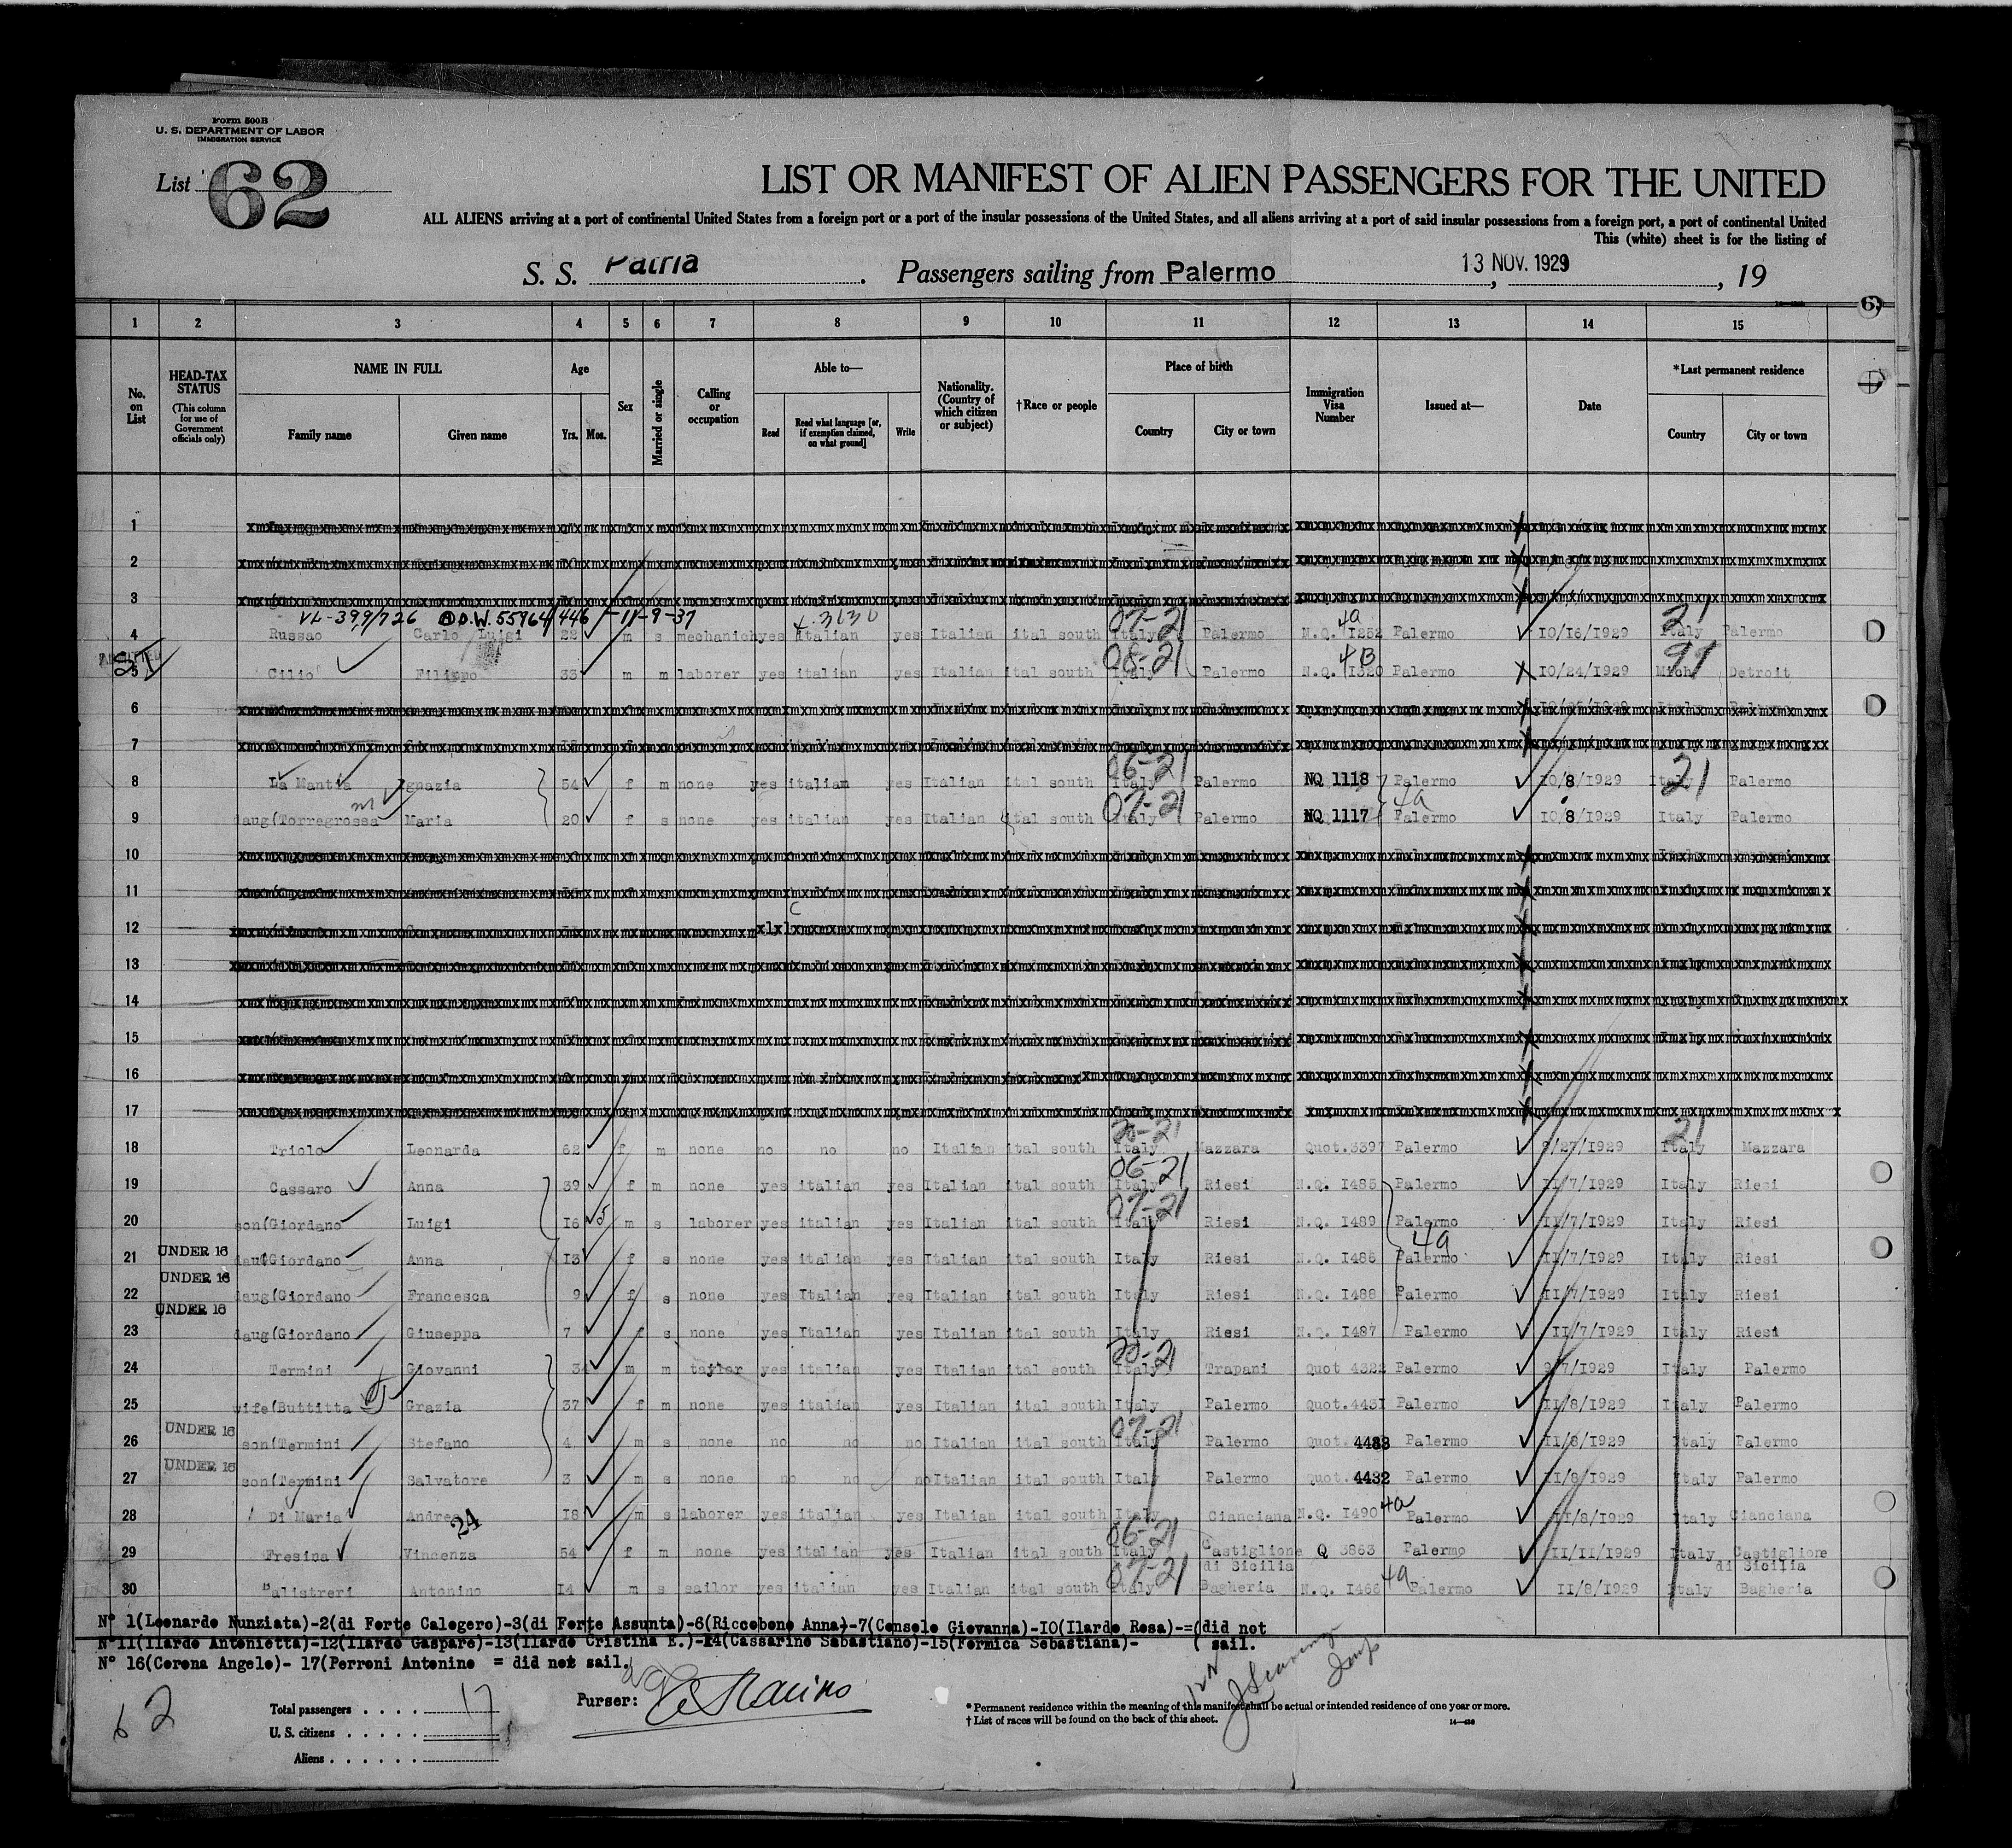 Form 500B
U. S. DEPARTMENT OF LABOR
IMMIGRATION SERVICE
List 62
LIST OR MANIFEST OF ALIEN PASSENGERS FOR THE UNITED
ALL ALIENS arriving at a port of continental United States from a foreign port or a port of the insular possessions of the United States, and all aliens arriving at a port of said insular possessions from a foreign port, a port of continental United
This (white) sheet is for the listing of
S. S. Patria . Passengers sailing from Palermo , 13 NOV. 1929 , 19
1 2 3 4 5 6 7 8 9 10 11 12 13 14 15
No. on List HEAD-TAX STATUS (This column for use of Government officials only) NAME IN FULL Family name Given name Age Yrs. Mos. Sex Married or single Calling or occupation Able to— Read Read what language [or, if exemption claimed, on what ground] Write Nationality. (Country of which citizen or subject) †Race or people Place of birth Country City or town Immigration Visa Number Issued at— Date *Last permanent residence Country City or town
1
2
3
VL-399/726 D.W. 55964/446 -11-9-37
4 Russao Carlo Luigi 22 m s mechanic yes italian yes Italian ital south 07-21 Italy Palermo N.Q. 1252 4a Palermo 10/16/1929 21 Italy Palermo
5 Cilio Filippo 33 m m laborer yes italian yes Italian ital south 08-21 Italy Palermo N.Q. 1320 4B Palermo 10/24/1929 Mich Detroit
6
7
8 La Mantia Ignazia 54 f m none yes italian yes Italian ital south 06-21 Italy Palermo NQ 1118 Palermo 10/8/1929 21 Italy Palermo
9 daug(Torregrossa Maria 20 f s none yes italian yes Italian ital south 07-21 Italy Palermo NQ 1117 4a Palermo 10/8/1929 Italy Palermo
10
11
12
13
14
15
16
17
18 Triolo Leonarda 62 f m none no no no Italian ital south Italy Mazzara Quot.3397 Palermo 9/27/1929 21 Italy Mazzara
19 Cassaro Anna 39 f m none yes italian yes Italian ital south 06-21 Italy Riesi N.Q. 1485 Palermo 11/7/1929 Italy Riesi
20 son(Giordano Luigi 16 m s laborer yes italian yes Italian ital south 07-21 Italy Riesi N.Q. 1489 Palermo 11/7/1929 Italy Riesi
21 UNDER 16 daug(Giordano Anna 13 f s none yes italian yes Italian ital south Italy Riesi N.Q. 1486 4a Palermo 11/7/1929 Italy Riesi
22 UNDER 16 daug(Giordano Francesca 9 f s none yes Italian yes Italian ital south Italy Riesi N.Q. 1488 Palermo 11/7/1929 Italy Riesi
23 UNDER 16 daug(Giordano Giuseppa 7 f s none yes Italian yes Italian ital south Italy Riesi N.Q. 1487 Palermo 11/7/1929 Italy Riesi
24 Termini Giovanni 34 m m taylor yes italian yes Italian ital south Italy Trapani Quot 4322 Palermo 9/7/1929 Italy Palermo
25 wife(Buttitta Grazia 37 f m none yes italian yes Italian ital south Italy Palermo Quot.4431 Palermo 11/8/1929 Italy Palermo
26 UNDER 16 son(Termini Stefano 4 m s none no no no Italian ital south 07-21 Italy Palermo Quot. Palermo 11/8/1929 Italy Palermo
27 UNDER 16 son(Termini Salvatore 3 m s none no no no Italian ital south Italy Palermo Quot. 4432 Palermo 11/8/1929 Italy Palermo
28 Di Maria Andrea 24 18 m s laborer yes italian yes Italian ital south Italy Cianciana N.Q. 1490 4a Palermo 11/8/1929 Italy Cianciana
29 Fresina Vincenza 54 f m none yes italian yes Italian ital south 06-21 Italy Castiglione di Sicilia Q 3863 Palermo 11/11/1929 Italy Castiglione di Sicilia
30 Balistreri Antonino 14 m s sailor yes italian yes Italian ital south 07-21 Italy Bagheria N.Q. 1466 4a Palermo 11/8/1929 Italy Bagheria
N° 1(Leonardo Nunziata)-2(di Forte Calogero)-3(di Forte Assunta)-6(Riccobono Anna)-7(Console Giovanna)-10(Ilardo Rosa)-=(did not
N°11(Ilardo Antonietta)-12(Ilardo Gaspare)-13(Ilardo Cristina E.)-14(Cassarino Sabastiano)-15(Formica Sebastiana)- ( sail.
N° 16(Corona Angelo)- 17(Perroni Antonino = did not sail.
62
Total passengers . . . . 17
U. S. citizens . . . . .
Aliens . . . . . .
Purser:
* Permanent residence within the meaning of this manifest shall be actual or intended residence of one year or more.
† List of races will be found on the back of this sheet.